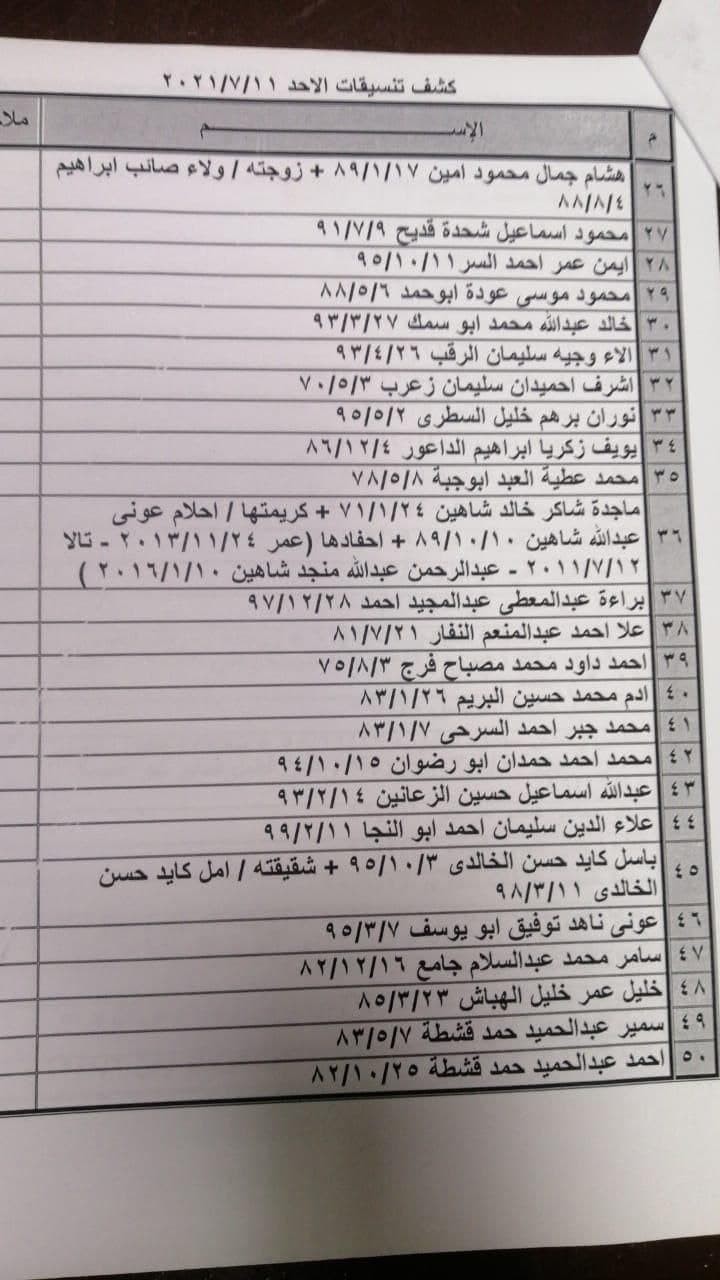 كشف تنسيقات الاحد ٢٠٢١/٧/١١
م الإســـــــــم ملا
٢٦ هشام جمال محمود امين ٨٩/١/١٧ + زوجته / ولاء صائب ابراهيم
٨٨/٨/٤
٢٧ محمود اسماعيل شحدة قديح ٩١/٧/٩
٢٨ ايمن عمر احمد السر ٩٥/١٠/١١
٢٩ محمود موسى عودة ابوحمد ٨٨/٥/٦
٣٠ خالد عبدالله محمد ابو سمك ٩٣/٣/٢٧
٣١ الاء وجيه سليمان الرقب ٩٣/٤/٢٦
٣٢ اشرف احميدان سليمان زعرب ٧٠/٥/٣
٣٣ نوران برهم خليل السطرى ٩٥/٥/٢
٣٤ يويف زكريا ابراهيم الداعور ٨٦/١٢/٤
٣٥ محمد عطية العبد ابوجبة ٧٨/٥/٨
ماجدة شاكر خالد شاهين ٧١/١/٢٤ + كريمتها / احلام عونى
٣٦ عبدالله شاهين ٨٩/١٠/١٠ + احفادها (عمر ٢٠١٣/١١/٢٤ - تالا
٢٠١١/٧/١٢ - عبدالرحمن عبدالله منجد شاهين ٢٠١٦/١/١٠ )
٣٧ براءة عبدالمعطى عبدالمجيد احمد ٩٧/١٢/٢٨
٣٨ علا احمد عبدالمنعم النفار ٨١/٧/٢١
٣٩ احمد داود محمد مصباح فرج ٧٥/٨/٣
٤٠ ادم محمد حسين البريم ٨٣/١/٢٦
٤١ محمد جبر احمد السرحى ٨٣/١/٧
٤٢ محمد احمد حمدان ابو رضوان ٩٤/١٠/١٥
٤٣ عبدالله اسماعيل حسين الزعانين ٩٣/٢/١٤
٤٤ علاء الدين سليمان احمد ابو النجا ٩٩/٢/١١
٤٥ باسل كايد حسن الخالدى ٩٥/١٠/٣ + شقيقته / امل كايد حسن
الخالدى ٩٨/٣/١١
٤٦ عونى ناهد توفيق ابو يوسف ٩٥/٣/٧
٤٧ سامر محمد عبدالسلام جامع ٨٢/١٢/١٦
٤٨ خليل عمر خليل الهباش ٨٥/٣/٢٣
٤٩ سمير عبدالحميد حمد قشطة ٨٣/٥/٧
٥٠ احمد عبدالحميد حمد قشطة ٨٢/١٠/٢٥